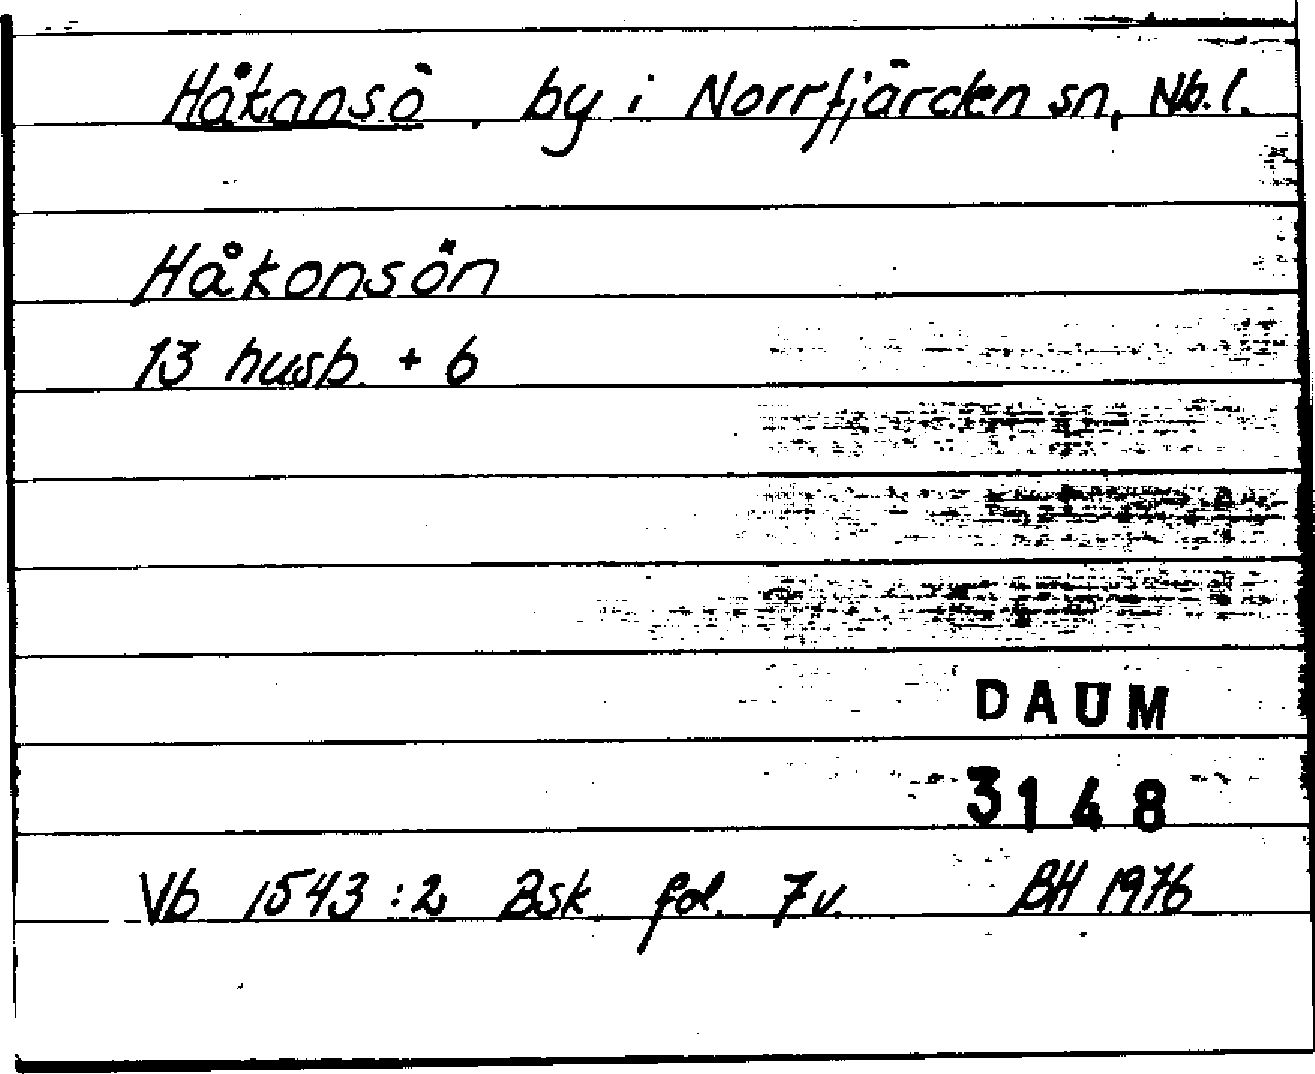 Håkansö, by i Norrfjärden sn, Nb.l.
Håkonsön
13 husb. + 6
DAUM
3148
Vb 1543:2 Bsk. fol. 7 v. BH 1976